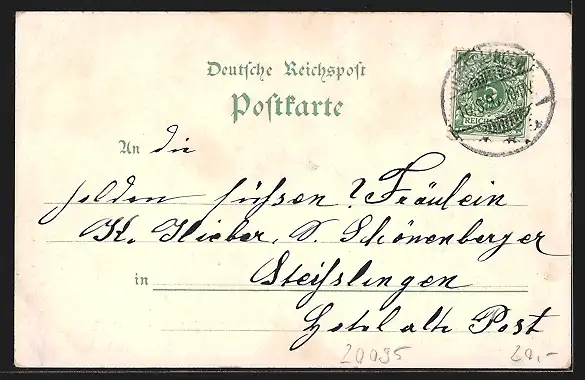 Deutsche Reichspost
Postkarte
An die
holden süssen ? Fräulein
K. Hieber, S. Schönenberger
in Steisslingen
Hotel alte Post
20095
20,-